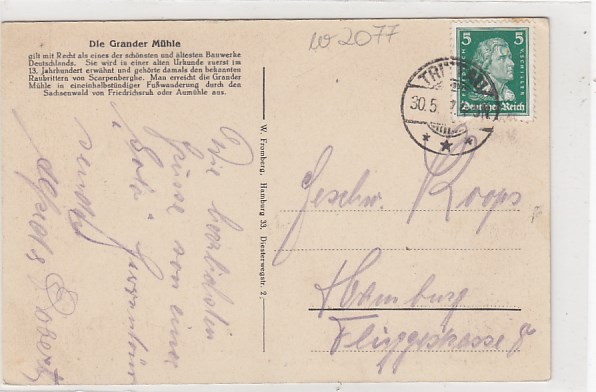 Die Grander Mühle
gilt mit Recht als eines der schönsten und ältesten Bauwerke
Deutschlands. Sie wird in einer alten Urkunde zuerst im
13. Jahrhundert erwähnt und gehörte damals den bekannten
Raubrittern von Scarpenberghe. Man erreicht die Grander
Mühle in eineinhalbstündiger Fußwanderung durch den
Sachsenwald von Friedrichsruh oder Aumühle aus.
W 2077
5 5
FRIEDRICH V. SCHILLER
Deutsches Reich
TRITTAU
30.5.
W. Fromberg, Hamburg 33, Diesterwegstr. 2.
Die herzlichsten
Grüsse von einer
Solo-Herrentour
sendet
Geschw. Koops
Hamburg
Flüggestrasse 8